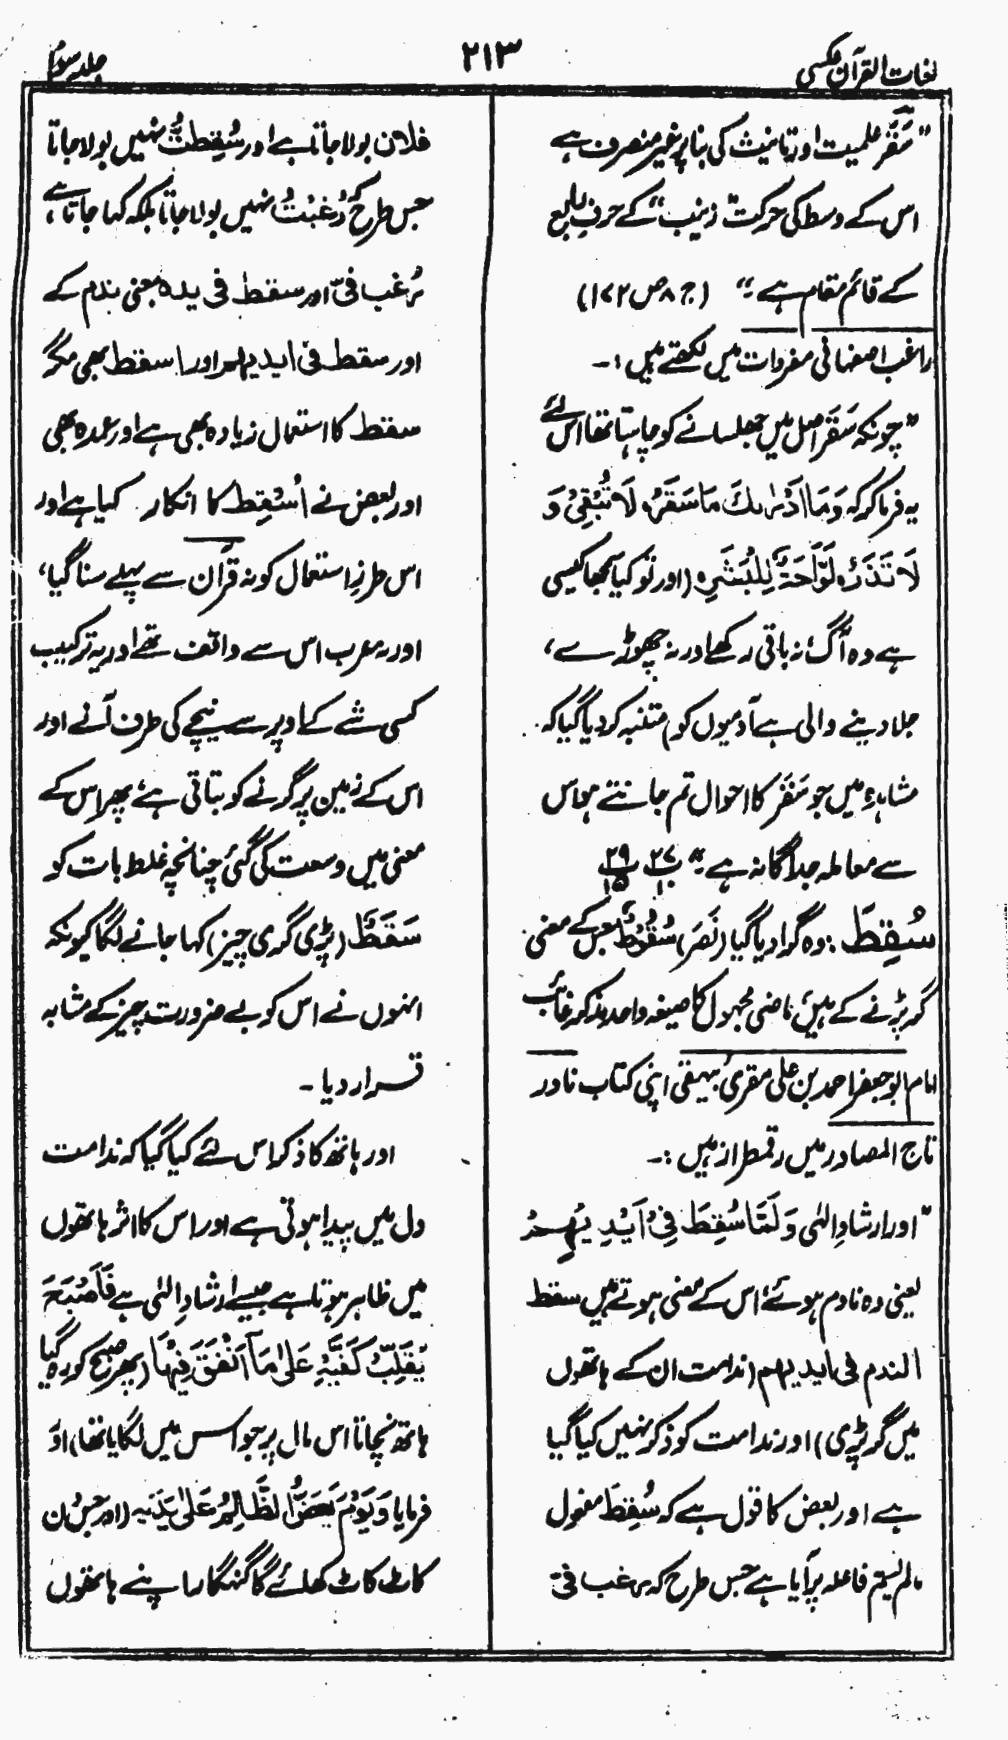 لغات القرآن عکسی
۲۱۳
جلد سوم
"سَقَر علمیت اور تانیث کی بنا پر غیر منصرف ہے
اس کے وسط کی حرکت "زینب" کے حرف رابع
کے قائم مقام ہے" (ج ۸ ص ۱۷۲)
راغب اصفہانی مفردات میں لکھتے ہیں :۔
"چونکہ سَقَر اصل میں جھلسانے کو چاہتا تھا اس لئے
یہ فرما کر کہ وَمَا اَدْرٰىكَ مَا سَقَرُ، لَا تُبْقِيْ وَ
لَا تَذَرُ، لَوَّاحَةٌ لِّلْبَشَرِ، (اور تو کیا سمجھا کیسی
ہے وہ آگ، نہ باقی رکھے اور نہ چھوڑے،
جلا دینے والی ہے آدمیوں کو) متنبہ کر دیا گیا کہ
مشاہدہ میں جو سَقَر کا احوال تم جانتے ہو اس
سے معاملہ جداگانہ ہے" ۲۷ ۲۹
۱۰ ۱۵
سُقِطَ :۔ وہ گرا دیا گیا (نَصَرَ) سُقُوْطٌ جس کے معنی
گر پڑنے کے ہیں، ماضی مجہول کا صیغہ واحد مذکر غائب
امام ابو جعفر احمد بن علی مقری بیہقی اپنی کتاب نادر
تاج المصادر میں رقمطراز ہیں :۔
"اور ارشادِ الٰہی وَلَمَّا سُقِطَ فِيْ اَيْدِيْهِمْ
یعنی وہ نادم ہوئے، اس کے معنی ہوتے ہیں سقط
الندم فی ایدیہم (ندامت ان کے ہاتھوں
میں گر پڑی) اور ندامت کو ذکر نہیں کیا گیا
ہے اور بعض کا قول ہے کہ سُقِطَ مفعول
مالم یسم فاعلہ پر آیا ہے جس طرح کہ رغب فی
فلان بولا جاتا ہے اور سُقِطَتْ نہیں بولا جاتا
جس طرح رُغِبَتْ نہیں بولا جاتا بلکہ کہا جاتا ہے،
رُغب فیَّ اور سقط فی یدہ بمعنی ندم کے
اور سقط فی ایدیہم اور اسقط بھی مگر
سقط کا استعمال زیادہ بھی ہے اور عمدہ بھی
اور بعض نے اُسْقِطَ کا انکار کیا ہے اور
اس طرزِ استعمال کو نہ قرآن سے پہلے سنا گیا،
اور نہ عرب اس سے واقف تھے اور یہ ترکیب
کسی شے کے اوپر سے نیچے کی طرف آنے اور
اس کے زمین پر گرنے کو بتاتی ہے، پھر اس کے
معنی میں وسعت کی گئی چنانچہ غلط بات کو
سَقَطٌ (پڑی گری چیز) کہا جانے لگا کیونکہ
انہوں نے اس کو بے ضرورت چیز کے مشابہ
قرار دیا ۔
اور ہاتھ کا ذکر اس لئے کیا گیا کہ ندامت
دل میں پیدا ہوتی ہے اور اس کا اثر ہاتھوں
میں ظاہر ہوتا ہے جیسے ارشادِ الٰہی ہے فَاَصْبَحَ
يُقَلِّبُ كَفَّيْهِ عَلٰى مَآ اَنْفَقَ فِيْهَا (پھر صبح کو رہ گیا
ہاتھ نچاتا اس مال پر جو اس میں لگایا تھا) اور
فرمایا وَيَوْمَ يَعَضُّ الظَّالِمُ عَلٰى يَدَيْهِ (اور جس دن
کاٹ کاٹ کھائے گا گنہگار اپنے ہاتھوں